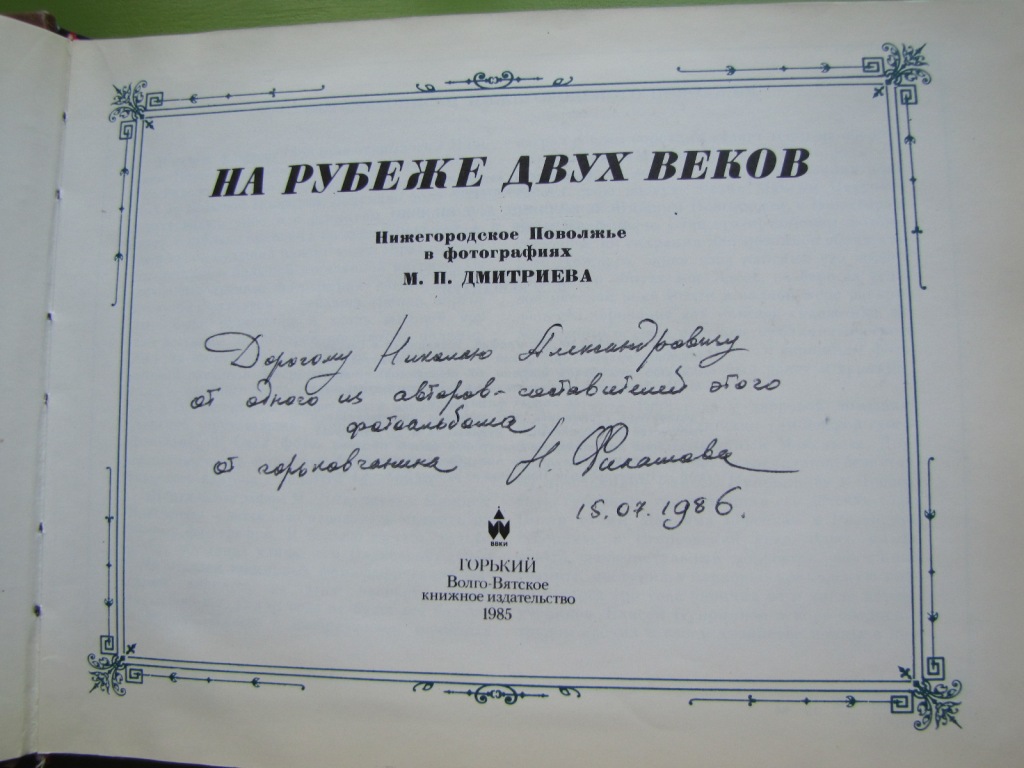 НА РУБЕЖЕ ДВУХ ВЕКОВ
Нижегородское Поволжье
в фотографиях
М. П. ДМИТРИЕВА
Дорогому Николаю Александровичу
от одного из авторов-составителей этого
фотоальбома
от горьковчанина Н. Филатова
15.07.1986.
ВВКИ
ГОРЬКИЙ
Волго-Вятское
книжное издательство
1985